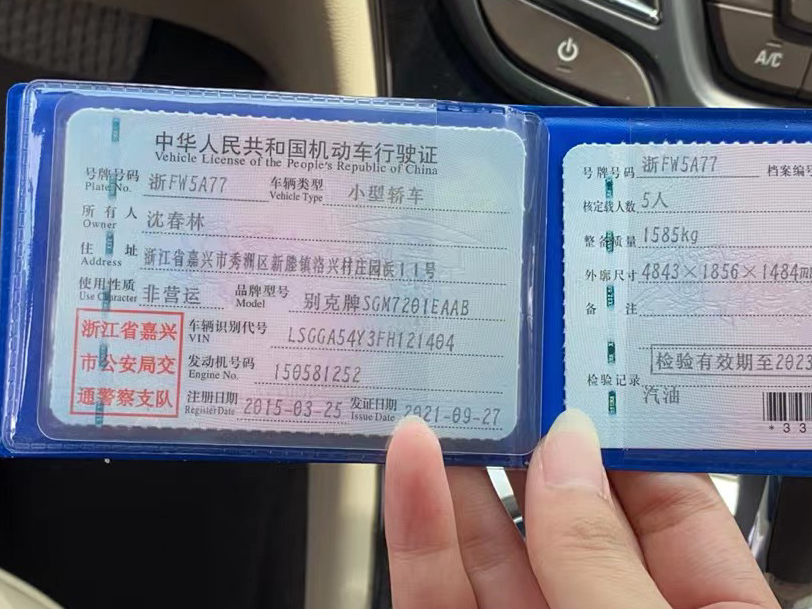 中华人民共和国机动车行驶证
Vehicle License of the People's Republic of China
号牌号码 浙FW5A77 车辆类型 小型轿车
Plate No. Vehicle Type
所有人 沈春林
Owner
住址 浙江省嘉兴市秀洲区新塍镇洛兴村庄园浜11号
Address
使用性质 非营运 品牌型号 别克牌SGM7201EAAB
Use Character Model
浙江省嘉兴
市公安局交
通警察支队
车辆识别代号 LSGGA54Y3FH121404
VIN
发动机号码 150581252
Engine No.
注册日期 2015-03-25 发证日期 2021-09-27
Register Date Issue Date
号牌号码 浙FW5A77 档案编号
核定载人数 5人
整备质量 1585kg
外廓尺寸 4843×1856×1484
备注
检验有效期至2023
检验记录
汽油
*33
A/C